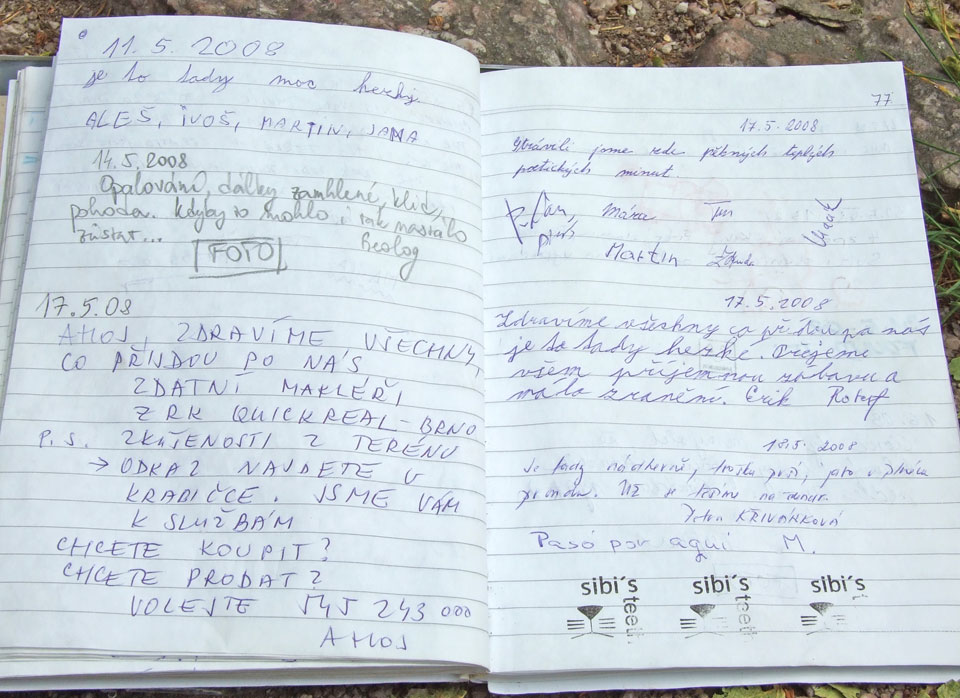 11. 5. 2008
je to tady moc hezky
ALEŠ, IVOŠ, MARTIN, JANA
14.5.2008
Opalování, dálky zamlžené, klid,
pohoda. Kdyby to mohlo i tak nastálo
zůstat...
Beolog
FOTO
17.5.08
AHOJ, ZDRAVÍME VŠECHNY,
CO PŘIJDOU PO NÁS
ZDATNÍ MAKLÉŘI
Z RK QUICKREAL-BRNO
P.S. ZKUŠENOSTI Z TERÉNU
→ ODKAZ NAJDETE V
KRABIČCE. JSME VÁM
K SLUŽBÁM
CHCETE KOUPIT?
CHCETE PRODAT?
VOLEJTE 545 243 000
AHOJ
77
17.5.2008
Strávili jsme zde pěkných teplých
poetických minut
Martin
17.5.2008
Zdravíme všechny co příjdou po nás
je to tady hezké. Přejeme
všem příjemnou zábavu a
málo zranění. Erik
18.5.2008
Je tady nádherně, trošku prší,
KŘIVÁNKOVÁ
Pasó por aquí M.
sibi's sibi's sibi's
teeth teeth t